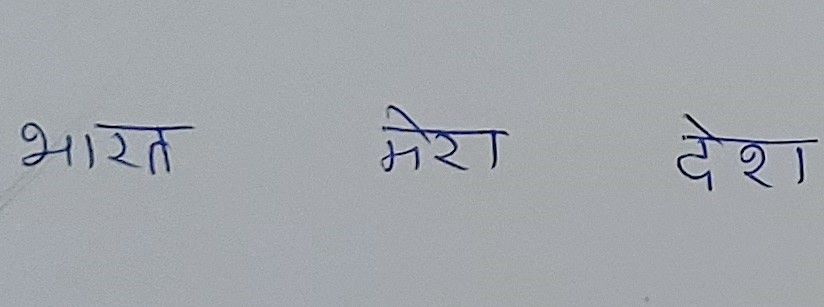 भारत मेरा देश